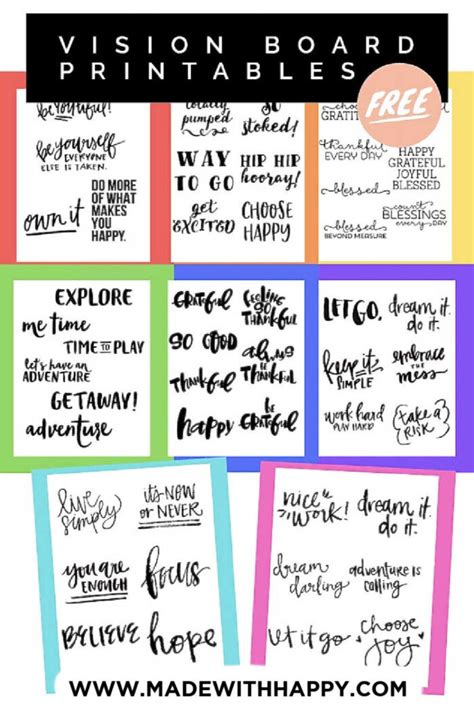 VISION BOARD
PRINTABLES
FREE
be YOUtiful!
be yourself
EVERYONE
ELSE IS TAKEN.
own it
DO MORE
OF WHAT
MAKES
YOU
HAPPY.
totally
pumped
SO
stoked!
WAY
TO GO
HIP HIP
hooray!
get
EXCITED
CHOOSE
HAPPY
choose
GRATIT
thankful
EVERY DAY
HAPPY
GRATEFUL
JOYFUL
BLESSED
blessed
blessed
BEYOND MEASURE
count
BLESSINGS
every DAY
EXPLORE
me time
TIME TO PLAY
let's have an
ADVENTURE
GETAWAY!
adventure
GRATEFUL
FEELING
SO
THANKFUL
SO GOOD
always
BE
THANKFUL
THANKFUL
happy
BE
GRATEFUL
LET GO.
dream it.
do it.
keep it
SIMPLE
embrace
THE
mess
work hard
PLAY HARD
{take a}
RISK
live
simply
it's NOW
or NEVER
you are
ENOUGH
focus
BELIEVE
hope
nice
WORK!
dream it.
do it.
dream
darling
adventure is
calling
let it go
choose
JOY
WWW.MADEWITHHAPPY.COM